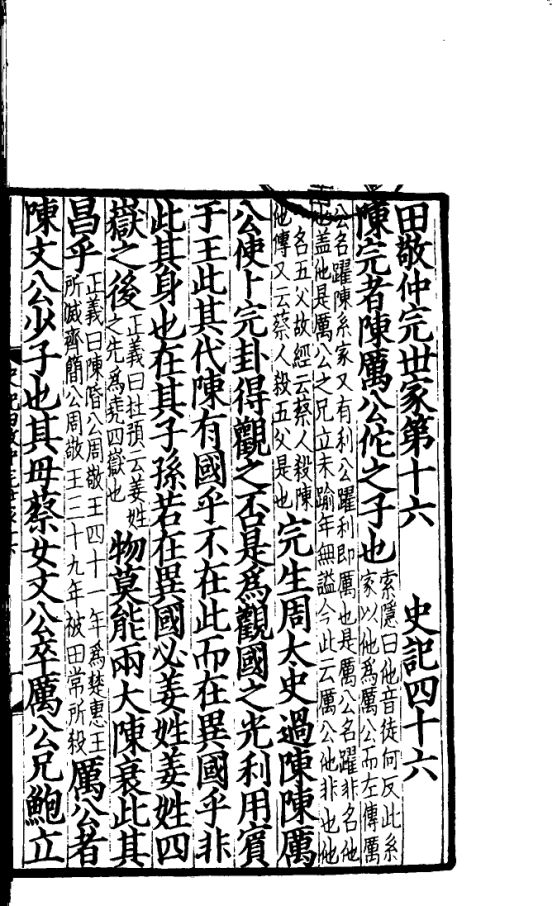 田敬仲完世家第十六　史記四十六
陳完者陳厲公佗之子也
索隱曰他音徒何反此系
家以他爲厲公而左傳厲
公名躍陳系家又有利公躍利即厲也是厲公名躍非名他
也蓋他是厲公之兄立未踰年無謚今此云厲公他非也他
名五父故經云蔡人殺陳
他傳又云蔡人殺五父是也
完生周太史過陳陳厲
公使卜完卦得觀之否是爲觀國之光利用賓
于王此其代陳有國乎不在此而在異國乎非
此其身也在其子孫若在異國必姜姓姜姓四
嶽之後
正義曰杜預云姜姓
之先爲堯四嶽也
物莫能兩大陳衰此其
昌乎
正義曰陳湣公周敬王四十一年爲楚惠王
所滅齊簡公周敬王三十九年被田常所殺
厲公者
陳文公少子也其母蔡女文公卒厲公兄鮑立